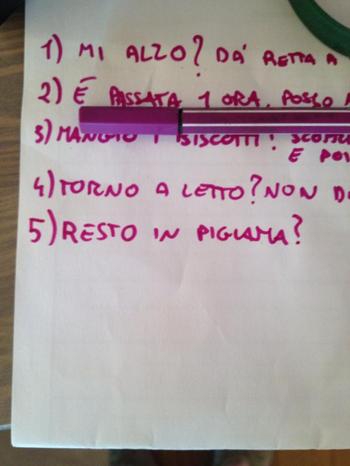 1) MI ALZO? DA' RETTA A
2) È PASSATA 1 ORA, POSSO
3) MANGIO I BISCOTTI?
E POI
4) TORNO A LETTO? NON
5) RESTO IN PIGIAMA?